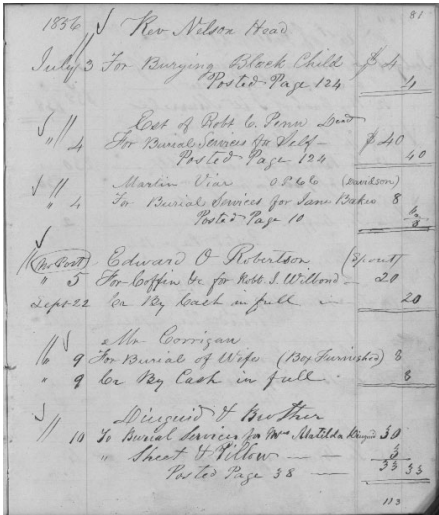 81
1856 Rev Nelson Head
July 3 For Burying Black Child - $ 4
Posted Page 124 4
Est of Robt C. Penn Dead
" 4 For Burial Services for Self - $ 40
Posted Page 124 40
Martin Viar (Davidson)
" 4 For Burial Services for Jane Baker 8
Posted Page 10 8
(No Post) Edward O Robertson
" 5 For Coffin &c for Robt. I. - 20
Sept 22 Cr By Cash in full 20
Mr. Corrigan
" 9 For Burial of Wife (Box Furnished) 8
" 9 Cr By Cash in full 8
Diuguid & Brother
" 10 To Burial Services for Mrs Matilda Diuguid 30
" Sheet & Pillow - 3
Posted Page 38 - 33 33
113